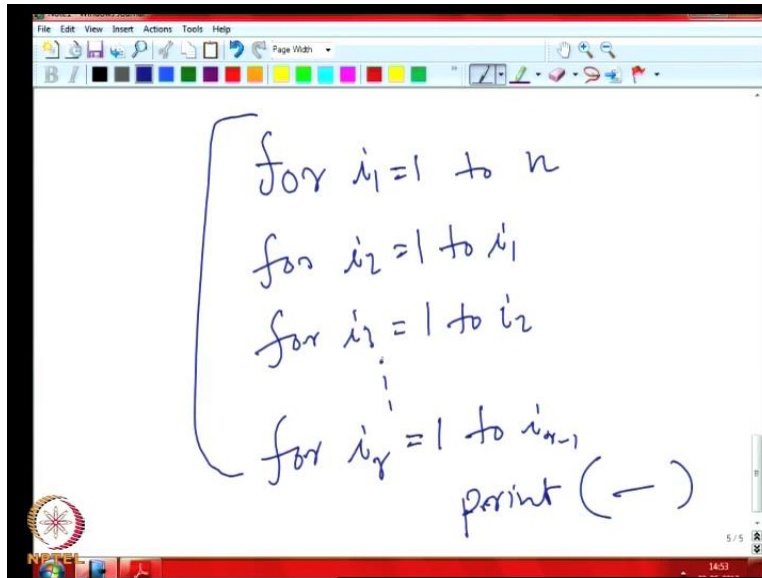 File Edit View Insert Actions Tools Help
Page Width
B I
for i₁ = 1 to n
for i₂ = 1 to i₁
for i₃ = 1 to i₂
for iᵣ = 1 to iᵣ₋₁
print (—)
5 / 5
NPTEL
14:53